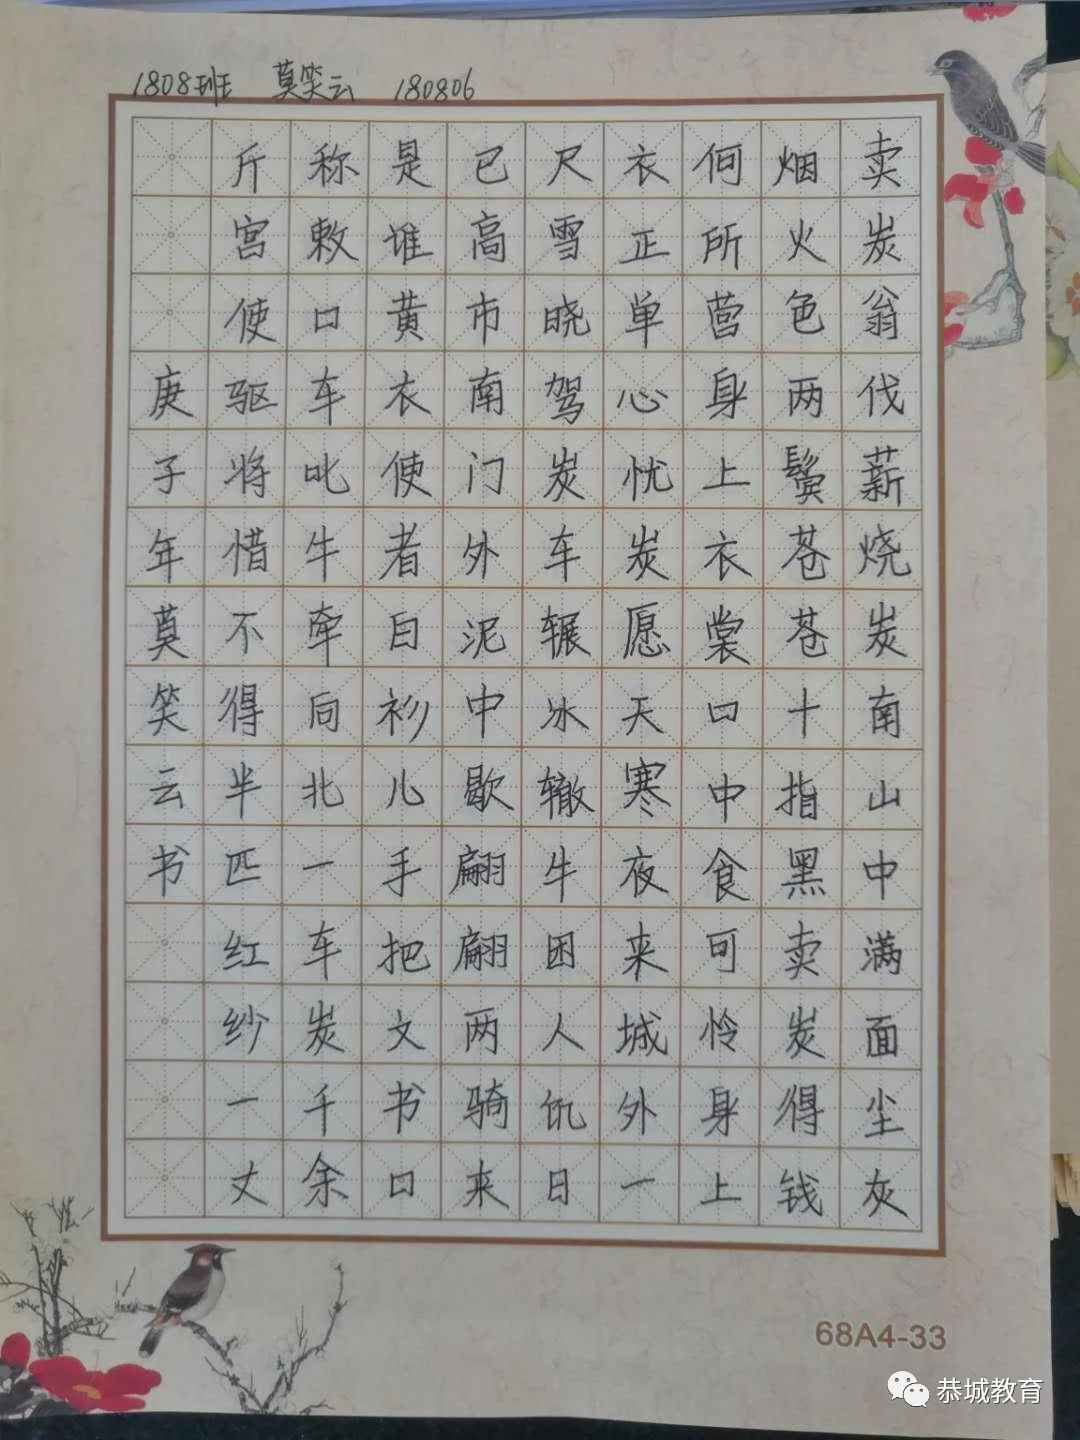 1808班 莫笑云 180806
卖炭翁伐薪烧炭南山中满面尘灰
烟火色两鬓苍苍十指黑卖炭得钱
何所营身上衣裳口中食可怜身上
衣正单心忧炭愿天寒夜来城外一
尺雪晓驾炭车辗冰辙牛困人饥日
已高市南门外泥中歇翩翩两骑来
是堆黄衣使者白衫儿手把文书口
称敕口车叱牛牵向北一车炭千余
斤宫使驱将惜不得半匹红纱一丈
庚子年莫笑云书
68A4-33
恭城教育